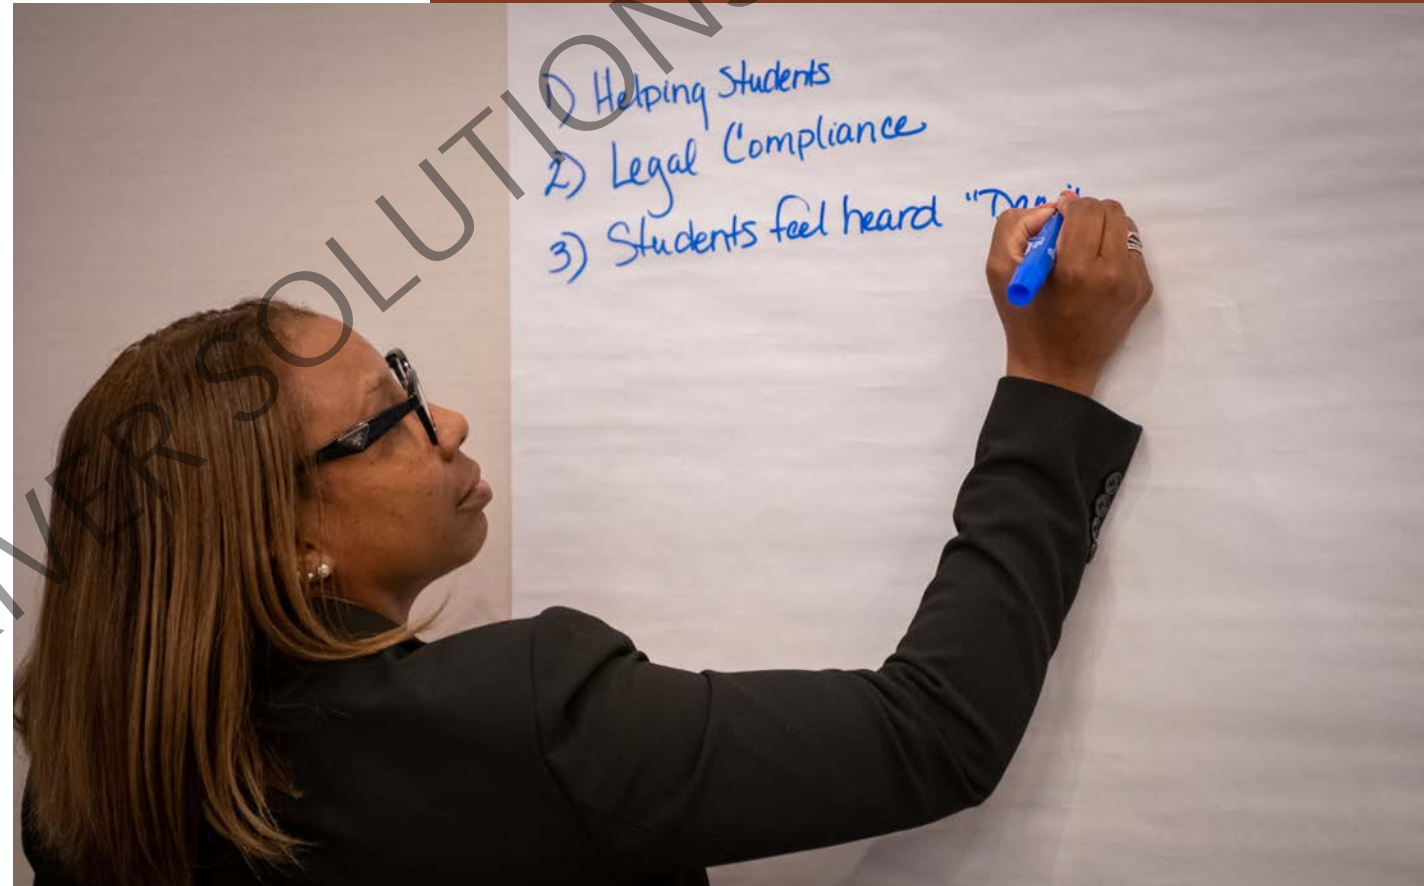 1) Helping Students
2) Legal Compliance
3) Students feel heard